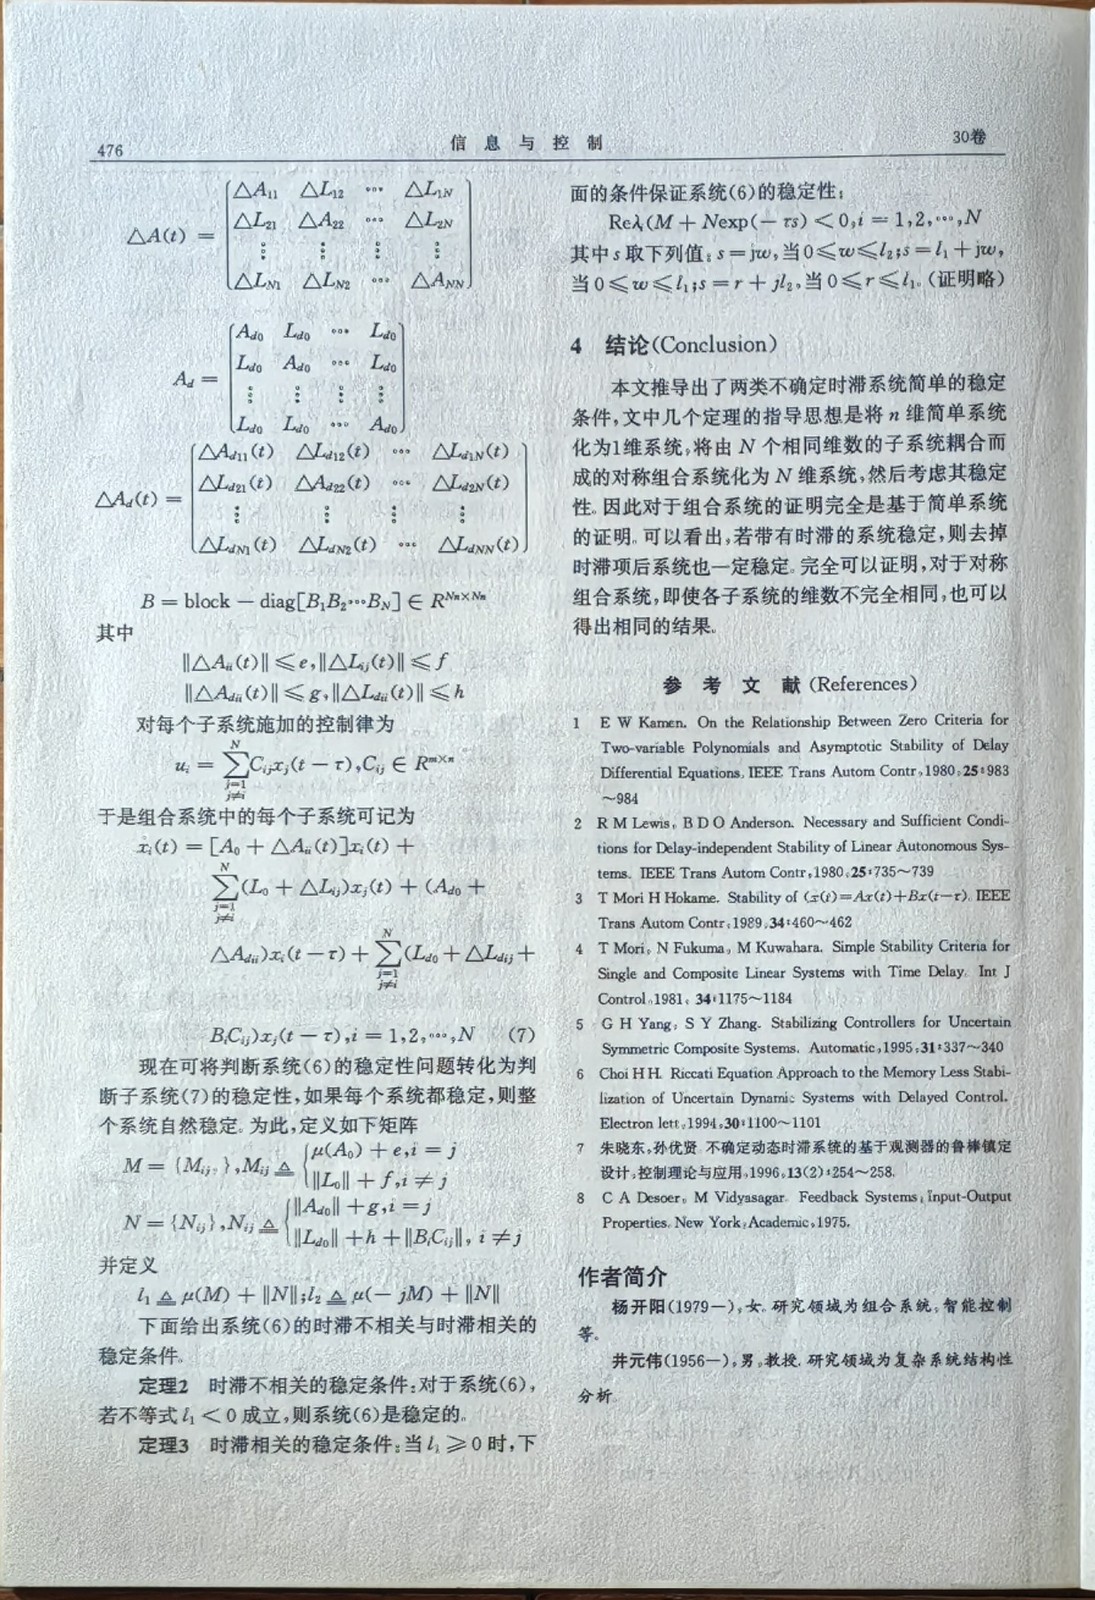 476
信息与控制
30卷
△A(t) = [△A₁₁ △L₁₂ ⋯ △L₁N
△L₂₁ △A₂₂ ⋯ △L₂N
⋮ ⋮ ⋮ ⋮
△LN₁ △LN₂ ⋯ △ANN]
Ad = [Ad0 Ld0 ⋯ Ld0
Ld0 Ad0 ⋯ Ld0
⋮ ⋮ ⋮ ⋮
Ld0 Ld0 ⋯ Ad0]
△Ad(t) = [△Ad11(t) △Ld12(t) ⋯ △Ld1N(t)
△Ld21(t) △Ad22(t) ⋯ △Ld2N(t)
⋮ ⋮ ⋮ ⋮
△LdN1(t) △LdN2(t) ⋯ △LdNN(t)]
B = block − diag[B₁B₂⋯BN] ∈ R^{Nn×Nn}
其中
‖△Aii(t)‖ ≤ e,‖△Lij(t)‖ ≤ f
‖△Adii(t)‖ ≤ g,‖△Ldii(t)‖ ≤ h
对每个子系统施加的控制律为
ui = ∑_{j=1, j≠i}^{N} Cijxj(t − τ),Cij ∈ R^{m×n}
于是组合系统中的每个子系统可记为
ẋi(t) = [A0 + △Aii(t)]xi(t) +
∑_{j=1, j≠i}^{N} (L0 + △Lij)xj(t) + (Ad0 +
△Adii)xi(t − τ) + ∑_{j=1, j≠i}^{N} (Ld0 + △Ldij +
BiCij)xj(t − τ),i = 1,2,⋯,N (7)
现在可将判断系统(6)的稳定性问题转化为判
断子系统(7)的稳定性,如果每个系统都稳定,则整
个系统自然稳定。为此,定义如下矩阵
M = {Mij,},Mij ≜ {μ(A0) + e,i = j
‖L0‖ + f,i ≠ j
N = {Nij},Nij ≜ {‖Ad0‖ + g,i = j
‖Ld0‖ + h + ‖BiCij‖, i ≠ j
并定义
l₁ ≜ μ(M) + ‖N‖;l₂ ≜ μ(− jM) + ‖N‖
下面给出系统(6)的时滞不相关与时滞相关的
稳定条件。
定理2 时滞不相关的稳定条件:对于系统(6),
若不等式 l₁ < 0 成立,则系统(6)是稳定的。
定理3 时滞相关的稳定条件:当 l₁ ≥ 0 时,下
面的条件保证系统(6)的稳定性:
Reλi(M + Nexp(− τs) < 0,i = 1,2,⋯,N
其中 s 取下列值:s = jw,当 0 ≤ w ≤ l₂;s = l₁ + jw,
当 0 ≤ w ≤ l₁;s = r + jl₂,当 0 ≤ r ≤ l₁。(证明略)
4 结论(Conclusion)
本文推导出了两类不确定时滞系统简单的稳定
条件,文中几个定理的指导思想是将 n 维简单系统
化为1维系统,将由 N 个相同维数的子系统耦合而
成的对称组合系统化为 N 维系统,然后考虑其稳定
性。因此对于组合系统的证明完全是基于简单系统
的证明。可以看出,若带有时滞的系统稳定,则去掉
时滞项后系统也一定稳定。完全可以证明,对于对称
组合系统,即使各子系统的维数不完全相同,也可以
得出相同的结果。
参考文献(References)
1 E W Kamen. On the Relationship Between Zero Criteria for
Two-variable Polynomials and Asymptotic Stability of Delay
Differential Equations. IEEE Trans Autom Contr,1980,25:983
~984
2 R M Lewis, B D O Anderson. Necessary and Sufficient Condi-
tions for Delay-independent Stability of Linear Autonomous Sys-
tems. IEEE Trans Autom Contr,1980,25:735~739
3 T Mori H Hokame. Stability of (ẋ(t)=Ax(t)+Bx(t−τ). IEEE
Trans Autom Contr,1989,34:460~462
4 T Mori, N Fukuma, M Kuwahara. Simple Stability Criteria for
Single and Composite Linear Systems with Time Delay. Int J
Control,1981, 34:1175~1184
5 G H Yang, S Y Zhang. Stabilizing Controllers for Uncertain
Symmetric Composite Systems. Automatic,1995,31:337~340
6 Choi H H. Riccati Equation Approach to the Memory Less Stabi-
lization of Uncertain Dynamic Systems with Delayed Control.
Electron lett,1994,30:1100~1101
7 朱晓东,孙优贤. 不确定动态时滞系统的基于观测器的鲁棒镇定
设计.控制理论与应用,1996,13(2):254~258.
8 C A Desoer, M Vidyasagar. Feedback Systems: Input-Output
Properties. New York:Academic,1975.
作者简介
杨开阳(1979−),女。研究领域为组合系统,智能控制
等。
井元伟(1956−),男,教授. 研究领域为复杂系统结构性
分析.